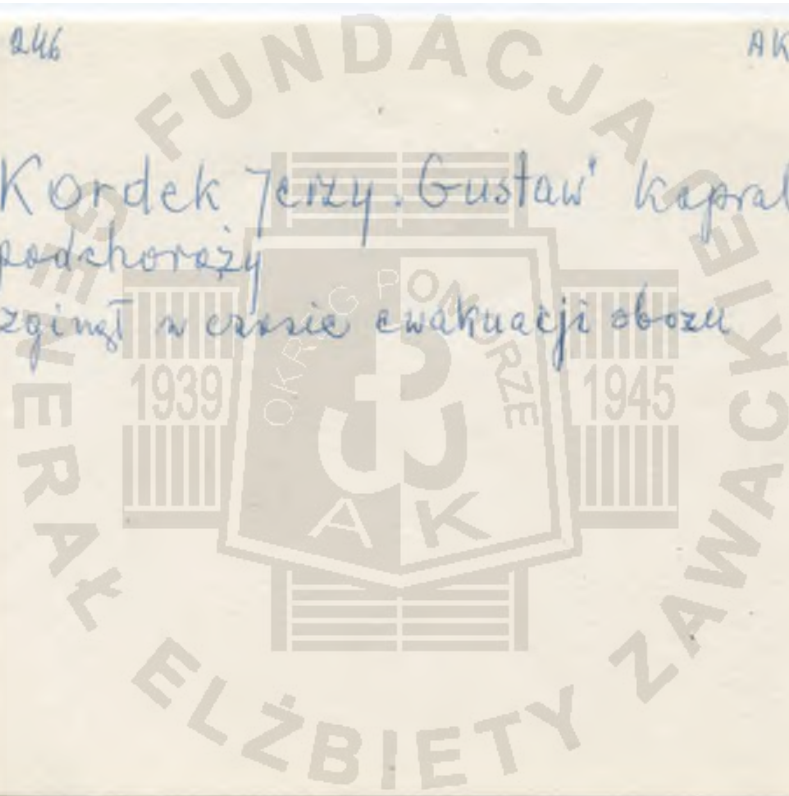 246
AK
Kordek Jerzy "Gustaw" kapral
podchorąży
zginął w czasie ewakuacji obozu
FUNDACJA GENERAŁ ELŻBIETY ZAWACKIEJ
OKRĘG POMORZE
1939
1945
A K